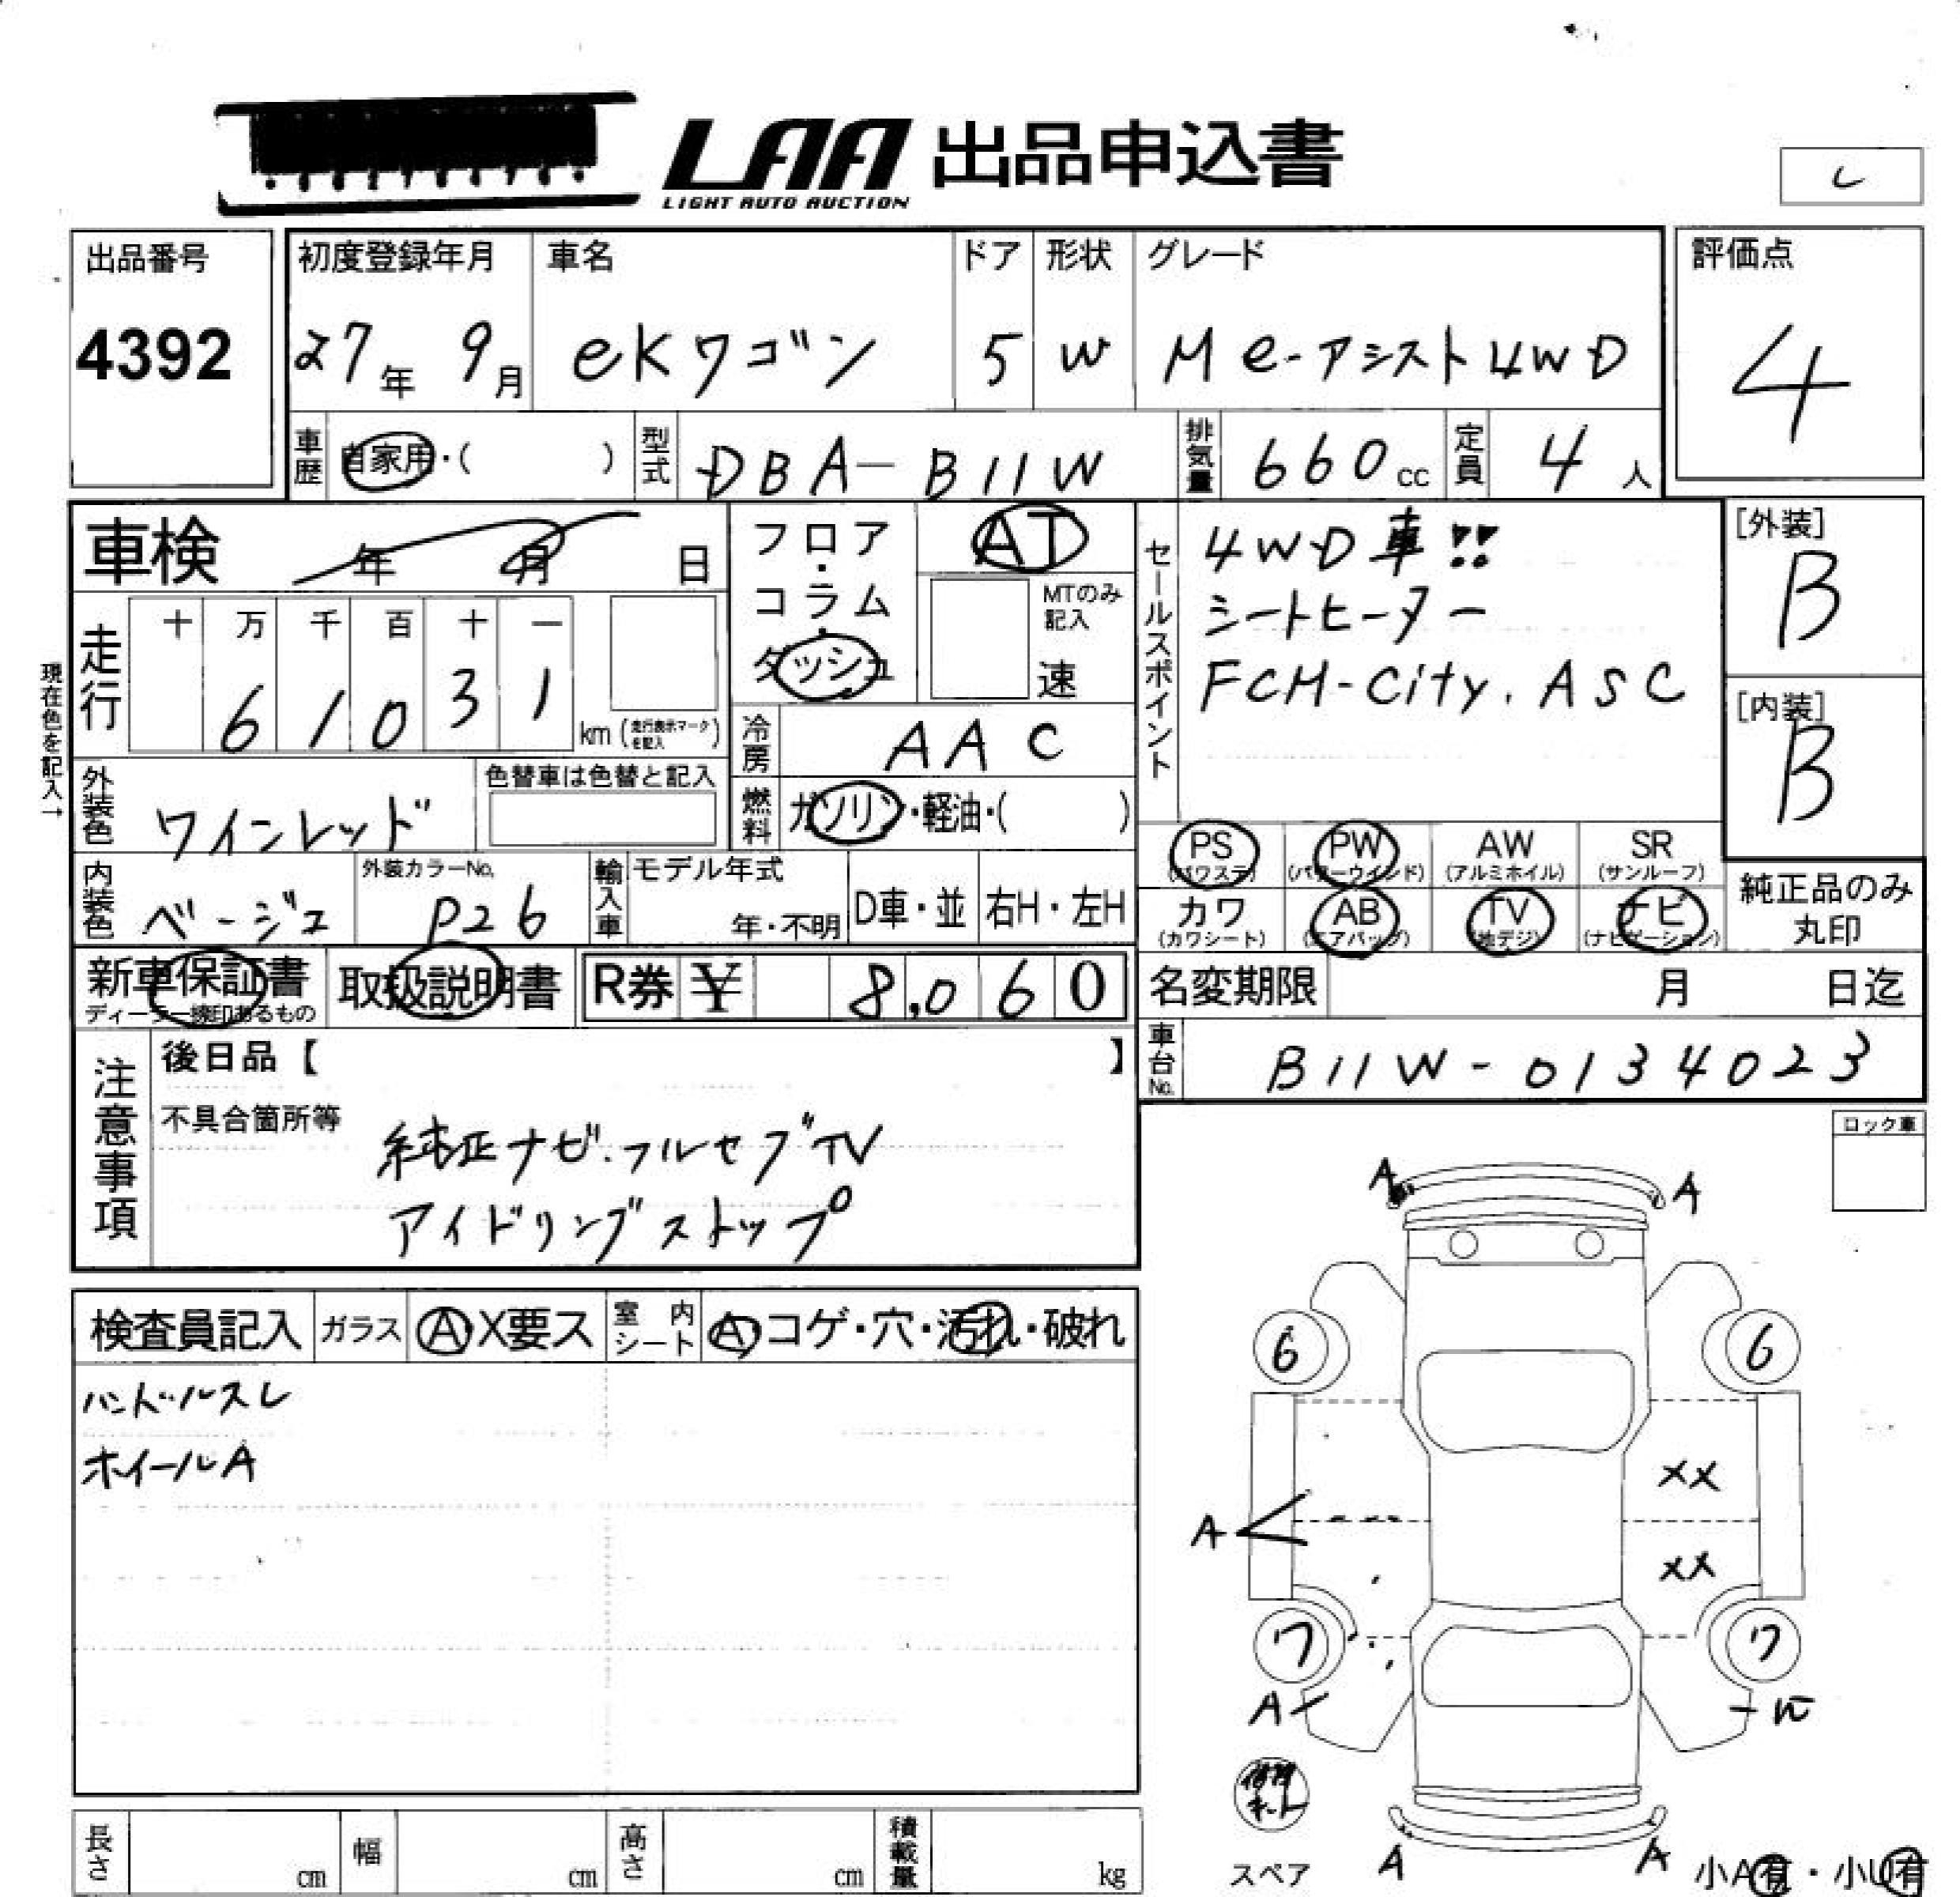 LAA 出品申込書
LIGHT AUTO AUCTION
レ
出品番号 4392
初度登録年月 27年 9月
車名 eKワゴン
ドア 5
形状 W
グレード M e-アシスト 4WD
評価点 4
車歴 自家用・( )
型式 DBA-B11W
排気量 660cc
定員 4人
車検 年 月 日
フロア・コラム・ダッシュ
AT
MTのみ記入
速
セールスポイント
4WD車!!
シートヒーター
FCM-City. ASC
[外装] B
[内装] B
現在色を記入→
走行 十 万 千 百 十 一
6 1 0 3 1 km (走行表示マークを記入)
冷房 AAC
外装色 ワインレッド
色替車は色替と記入
燃料 ガソリン・軽油・( )
内装色 ベージュ
外装カラーNo. P26
輸入車 モデル年式 年・不明
D車・並 右H・左H
PS (パワステ)
PW (パワーウインド)
AW (アルミホイル)
SR (サンルーフ)
カワ (カワシート)
AB (エアバッグ)
TV (地デジ)
ナビ (ナビゲーション)
純正品のみ丸印
新車保証書
ディーラー捺印あるもの
取扱説明書
R券 ¥ 8,060
名変期限 月 日迄
車台No. B11W-0134023
注意事項
後日品【 】
不具合箇所等
純正ナビ.フルセグTV
アイドリングストップ
ロック車
検査員記入
ガラス A・X要ス
室内シート A・コゲ・穴・汚れ・破れ
ハンドルスレ
ホイールA
A A
6 6
XX
A
XX
7 7
A
スペア
A A
小A有・小U有
長さ cm
幅 cm
高さ cm
積載量 kg